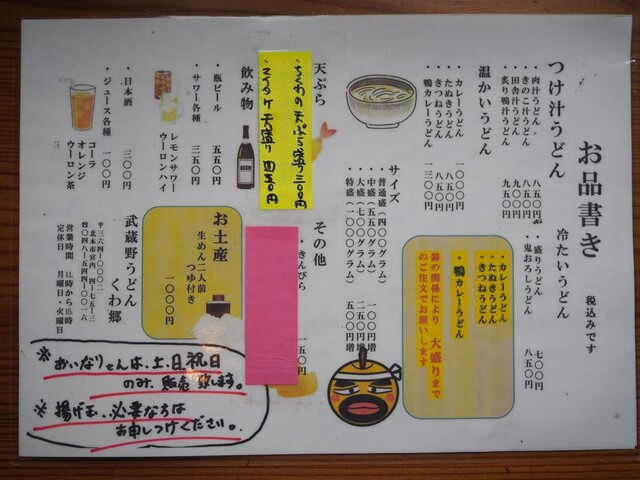 お品書き
税込みです
つけ汁うどん
・肉汁うどん 八五〇円
・きのこ汁うどん 八五〇円
・田舎汁うどん 九五〇円
・炙り鴨汁うどん 九五〇円
冷たいうどん
・盛りうどん 七〇〇円
・鬼おろしうどん 八五〇円
温かいうどん
・カレーうどん 一〇〇〇円
・たぬきうどん 八五〇円
・きつねうどん 八五〇円
・鴨カレーうどん 一三〇〇円
・カレーうどん
・たぬきうどん
・きつねうどん
・鴨カレーうどん
器の関係により 大盛りまで
のご注文でお願いします
サイズ
・普通盛（四〇〇グラム）
・中盛（五五〇グラム） 一〇〇円増
・大盛（七〇〇グラム） 二五〇円増
・特盛（一〇〇〇グラム） 五〇〇円増
天ぷら
・ちくわの天ぷら盛り 三〇〇円
・マイタケ天盛り 四五〇円
その他
・きんぴら 一五〇円
飲み物
・瓶ビール 五五〇円
・サワー各種 三五〇円
レモンサワー
ウーロンハイ
・日本酒 三〇〇円
・ジュース各種 一〇〇円
コーラ
オレンジ
ウーロン茶
BEER
お土産
生めん二人前
つゆ付き
一〇〇〇円
武蔵野うどん
くわ郷
〒三六四-〇〇〇二
北本市宮内 四-七五-三
☎〇四八-五四四-〇〇一六
営業時間 11時から15時
定休日 月曜日・火曜日
※おいなりさんは、土、日、祝日
のみ、販売致します。
※揚げ玉、必要ならば
お申しつけください。